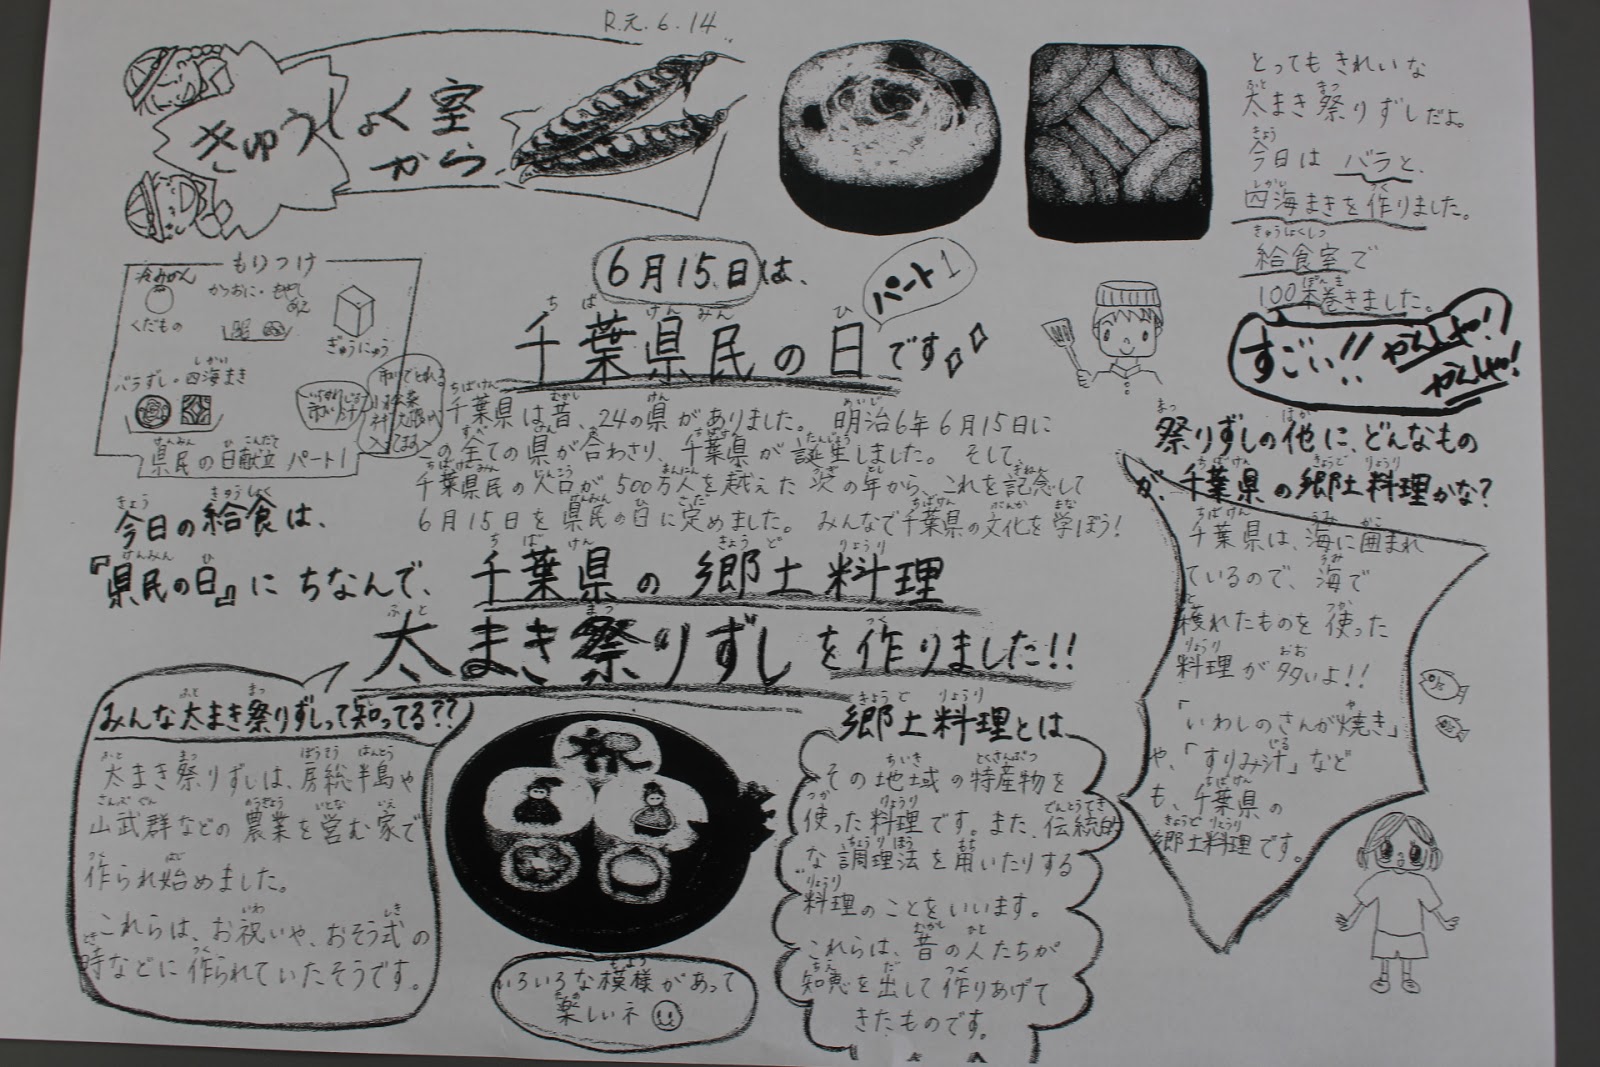 R.元.6.14
きゅうしょく室
から
とっても きれいな
太まき祭りずしだよ。
今日は バラと、
四海まきを作りました。
給食室で
100本巻きました。
すごい!! かんしゃ!
かんしゃ!
もりつけ
冷みかん
くだもの
かつおに・もやし
あえ
ぎゅうにゅう
バラずし・四海まき
県民の日献立 パート1
6月15日は、
パート1
千葉県民の日です
千葉県は昔、24の県がありました。 明治6年6月15日に
全ての県が合わさり、千葉県が誕生しました。 そして、
千葉県民の人口が500万人を越えた次の年から、これを記念して
6月15日を県民の日に定めました。 みんなで千葉県の文化を学ぼう!
今日の給食は、
『県民の日』にちなんで、千葉県の郷土料理
太まき祭りずしを作りました!!
みんな太まき祭りずしって知ってる??
太まき祭りずしは、房総半島や
山武群などの農業を営む家で
作られ始めました。
これらは、お祝いや、おそう式の
時などに作られていたそうです。
祝
いろいろな模様があって
楽しいネ
郷土料理とは
その地域の特産物を
使った料理です。また、伝統的
な調理法を用いたりする
料理のことをいいます。
これらは、昔の人たちが
知恵を出して作りあげて
きたものです。
祭りずしの他に、どんなもの
が、千葉県の郷土料理かな?
千葉県は、海に囲まれ
ているので、海で
穫れたものを使った
料理が多いよ!!
「いわしのさんが焼き」
や、「すりみ汁」など
も、千葉県の
郷土料理です。